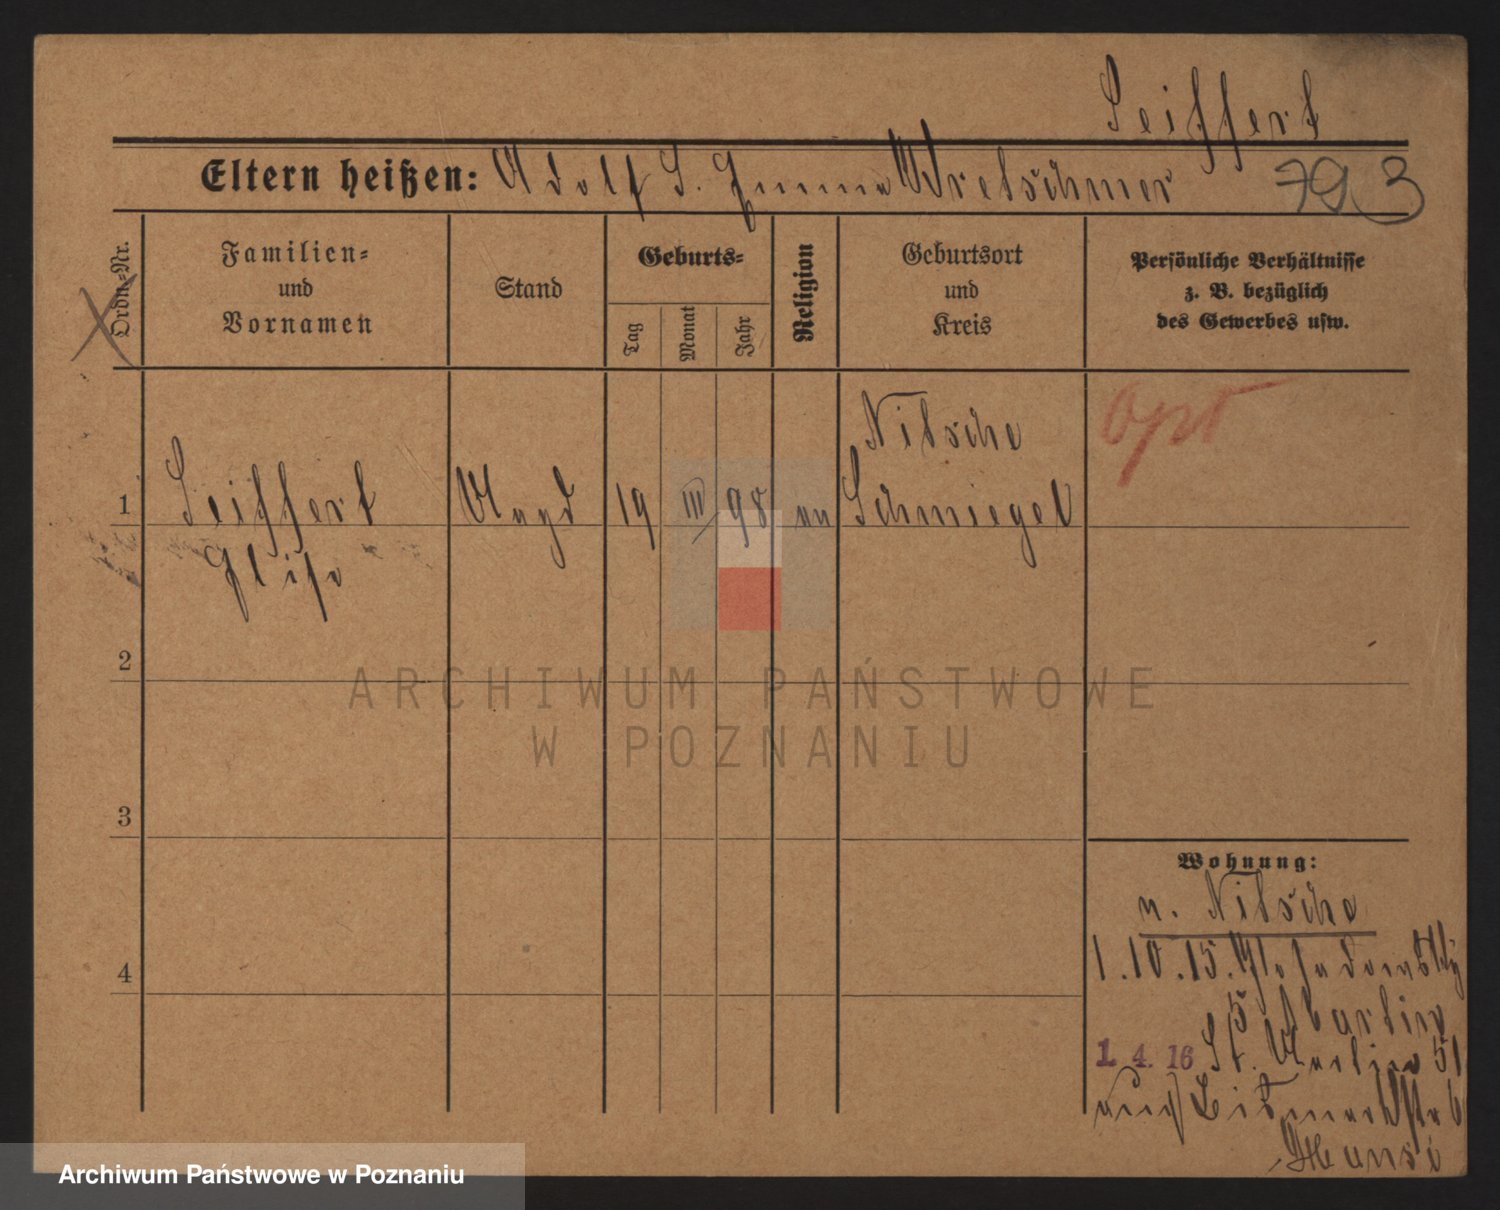 Seiffert
Eltern heißen: Adolf S. Emma Kretschmer
793
Ordn.-Nr.
Familien-
und
Vornamen
Stand
Geburts-
Tag
Monat
Jahr
Religion
Geburtsort
und
Kreis
Persönliche Verhältnisse
z. B. bezüglich
des Gewerbes usw.
1
Seiffert
Magd
19
III
98
Nitsche
Schmiegel
2
3
4
Wohnung:
v. Nitsche
1.10.15.
1. 4. 16 St. Martin 51
Bismarckstr
ARCHIWUM PAŃSTWOWE
W POZNANIU
Archiwum Państwowe w Poznaniu